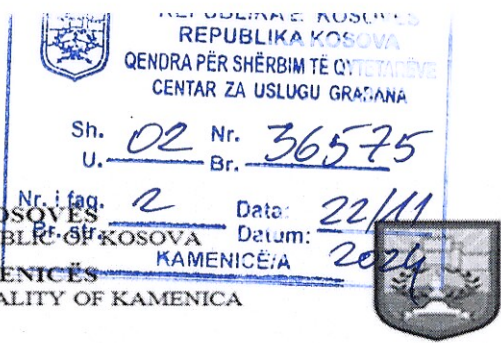 REPUBLIKA E KOSOVËS
REPUBLIKA KOSOVA
QENDRA PËR SHËRBIM TË QYTETARËVE
CENTAR ZA USLUGU GRAĐANA
Sh. 02 Nr. 36575
U. Br.
Nr. i faq. 2 Data: 22/11
Br. str. Datum: 2024
KAMENICË/A
OSOVËS
BLIC OF KOSOVA
ENICËS
ALITY OF KAMENICA